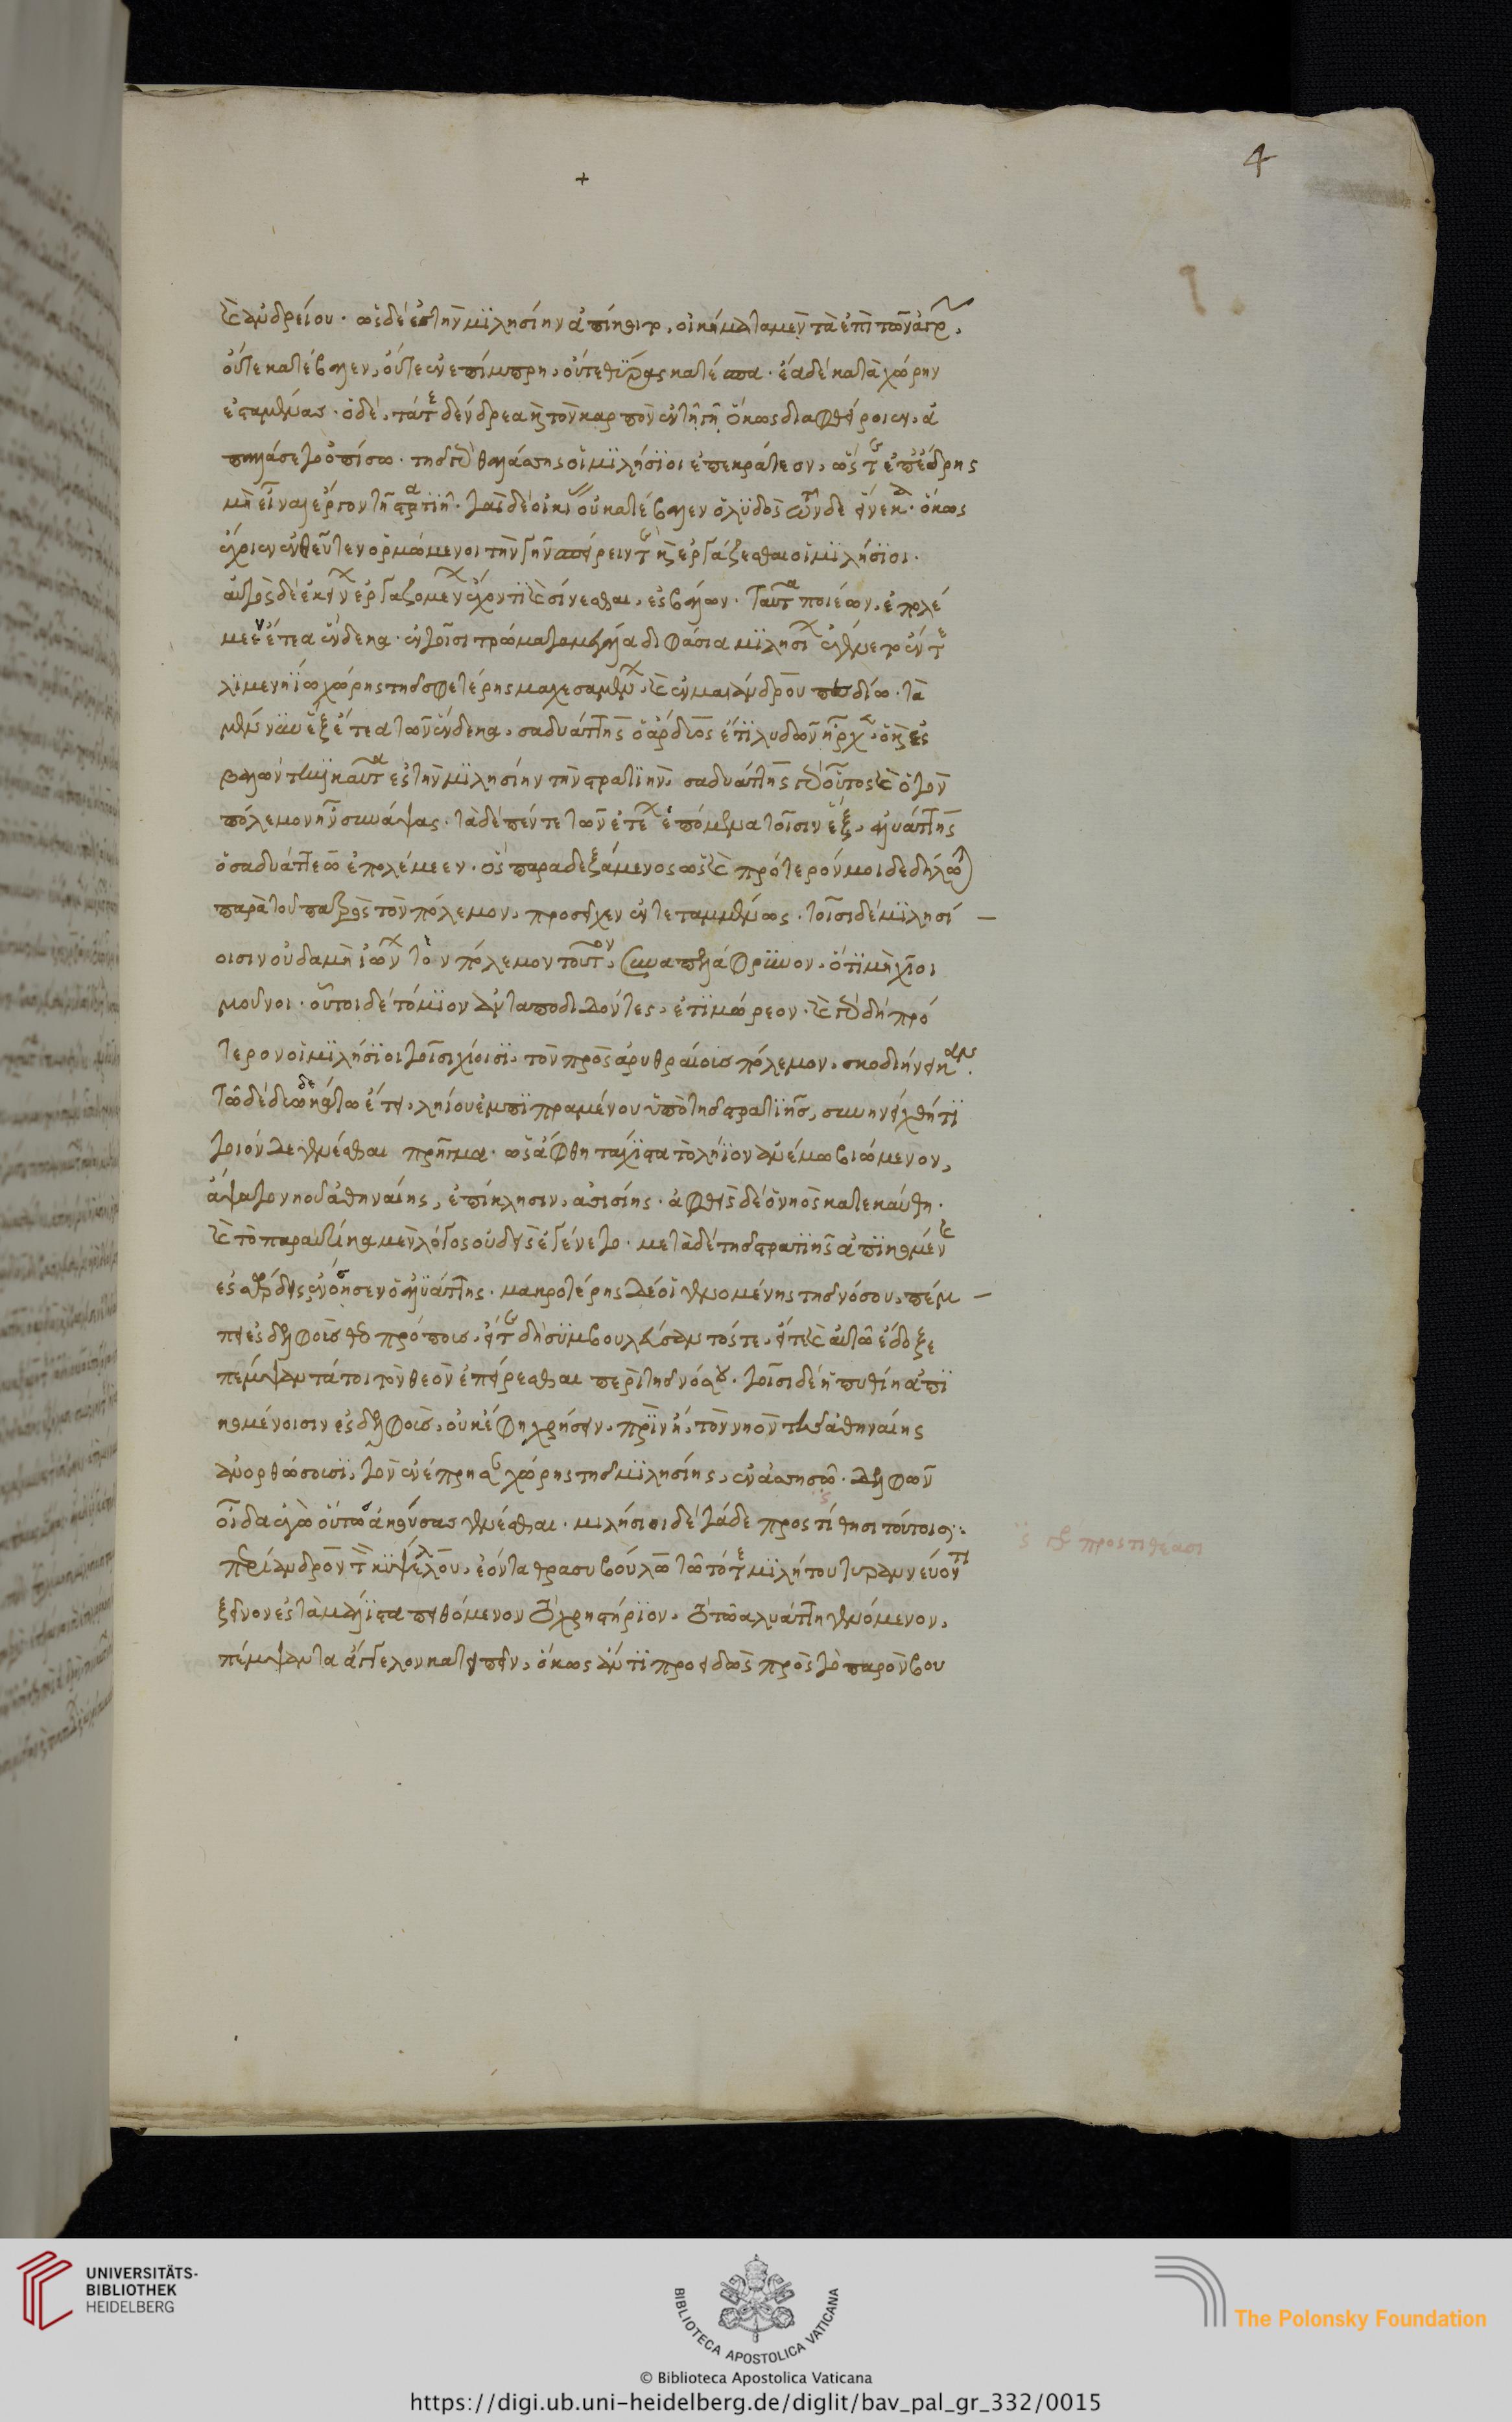 καὶ ἀνδρείου· ὡς δὲ ἐς τὴν μϊλησίην ἀπίκοιτο, οἰκήματα μὲν τὰ ἐπὶ τῶν ἀγρῶν,
οὔτε κατέβαλλεν, οὔτε ἐνεπίμπρη, οὔτε θύρας κατέσπα· ἔα δὲ κατὰ χώρην
ἑστάμεναι· ὁ δὲ, τά τε δένδρεα καὶ τὸν καρπὸν ἐν τῆ γῆ ὅκως διαφθείροιεν, ἀ
παλλάσετο ὀπίσω· τῆς γὰρ θαλάσσης οἱ μϊλήσϊοι ἐπεκράτεον, ὥς τε ἐπέδρης
μὴ εἶναι ἔργον τῆ στρατϊῆ· τὰς δὲ οἰκίας οὐ κατέβαλλεν ὁ λϋδὸς τῶνδε εἵνεκα· ὅκως
ἔχοιεν ἐνθεῦτεν ὁρμώμενοι τὴν γῆν σπείρειν τε καὶ ἐργάζεσθαι οἱ μϊλήσϊοι·
αὐτὸς δὲ ἐκείνων ἐργαζομένων ἔχοι τϊ καὶ σίνεσθαι, ἐσβάλλων· ταῦτα ποιέων, ἐπολέ
μεεν ἔτεα ἕνδεκα· ἐν τοῖσι τρώματα μεγάλα διφάσια μϊλησίων ἐγένετο ἔν τε
λϊμενηΐω χώρης τῆς σφετέρης μαχεσαμένων, καὶ ἐν μαιάνδρου πεδίω· τὰ
μέν νυν ἓξ ἔτεα τῶν ἕνδεκα, σαδυάττης ὁ ἄρδυος ἔτϊ λυδῶν ἦρχε, ὁ καὶ ἐς
βαλὼν τηνικαῦτα ἐς τὴν μϊλησίην τὴν στρατϊήν· σαδυάττης γὰρ οὗτος καὶ ὁ τὸν
πόλεμον ἦν συνάψας· τὰ δὲ πέντε τῶν ἐτέων ἑπόμενα τοῖσιν ἓξ, ἀλυάττης
ὁ σαδυάττεω ἐπολέμεεν· ὃς παραδεξάμενος ὡς καὶ πρότερόν μοι δεδήλωται
παρὰ τοῦ πατρὸς τὸν πόλεμον, προσεῖχεν ἐντεταμμένως· τοῖσι δὲ μϊλησί
οισιν οὐδαμῆ ἰώνων τὸν πόλεμον τοῦτον, συναπελάφρϋνον, ὅτϊ μὴ χῖοι
μοῦνοι· οὗτοι δὲ τόμϊον ἀνταποδιδόντες, ἐτϊμώρεον· καὶ γὰρ δὴ πρό
τερον οἱ μϊλήσϊοι τοῖσι χίοισϊ, τὸν πρὸς ἐρυθραίους πόλεμον, συνδιήνεικαν·
τῶ δὲ δυωδεκάτω ἔτει, ληίου ἐμπϊπραμένου ὑπὸ τῆς στρατϊῆς, συνηνείχθη τϊ
τοιόνδε γενέσθαι πρῆγμα· ὡς ἅφθη τάχϊστα τὸ λήϊον ἀνέμω βιώμενον,
ἅψατο νηοῦ ἀθηναίης, ἐπίκλησιν, ἀσσησίης· ἀφθεὶς δὲ ὁ νηὸς κατεκαύθη·
καὶ τὸ παραυτίκα μὲν λόγος οὐδεὶς ἐγένετο· μετὰ δὲ τῆς στρατιῆς ἀπϊκομένης
ἐς σάρδεις ἐνόσησεν ὁ ἀλυάττης· μακροτέρης δέ οἱ γενομένης τῆς νόσου, πέμ
πει ἐς δελφοὺς θεοπρόπους, εἴτε δὴ συμβουλεύσαντός τε, εἴτε καὶ αὐτῶ ἔδοξε
πέμψαντά τοι τὸν θεὸν ἐπείρεσθαι περὶ τῆς νόσου· τοῖσι δὲ ἡ πυθίη ἀπϊ
κομένοισιν ἐς δελφοὺς, οὐκ ἔφη χρήσειν, πρὶν ἢ, τὸν νηὸν τῆς ἀθηναίης
ἀνορθώσουσϊ, τὸν ἐνέπρησαν χώρης τῆς μϊλησίης, ἐν ἀσσησῶ· δελφῶν
οἶδα ἐγὼ οὕτως ἀκούσας γενέσθαι· μιλήσιοι δὲ τάδε προστίθησι τούτοισϊ:
περίανδρον τὸν κϋψέλου, ἐόντα θρασυβούλω τῶ τότε μϊλήτου τυραννεύοντι
ξεῖνον ἐς τὰ μάλϊστα πυθόμενον τὸ χρηστήρϊον, τὸ τῶ ἀλυάττη γενόμενον,
πέμψαντα ἄγγελον κατειπεῖν, ὅκως ἄν τϊ προειδὼς πρὸς τὸ παρὸν βου
προστιθέασι
4
UNIVERSITÄTS-
BIBLIOTHEK
HEIDELBERG
BIBLIOTECA APOSTOLICA VATICANA
The Polonsky Foundation
© Biblioteca Apostolica Vaticana
https://digi.ub.uni-heidelberg.de/diglit/bav_pal_gr_332/0015